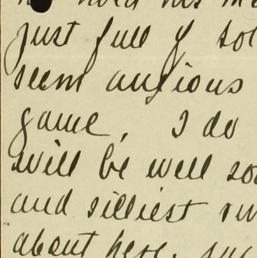 held his
just full of
seem anxious
game, I do
will be well
and silliest
about here.